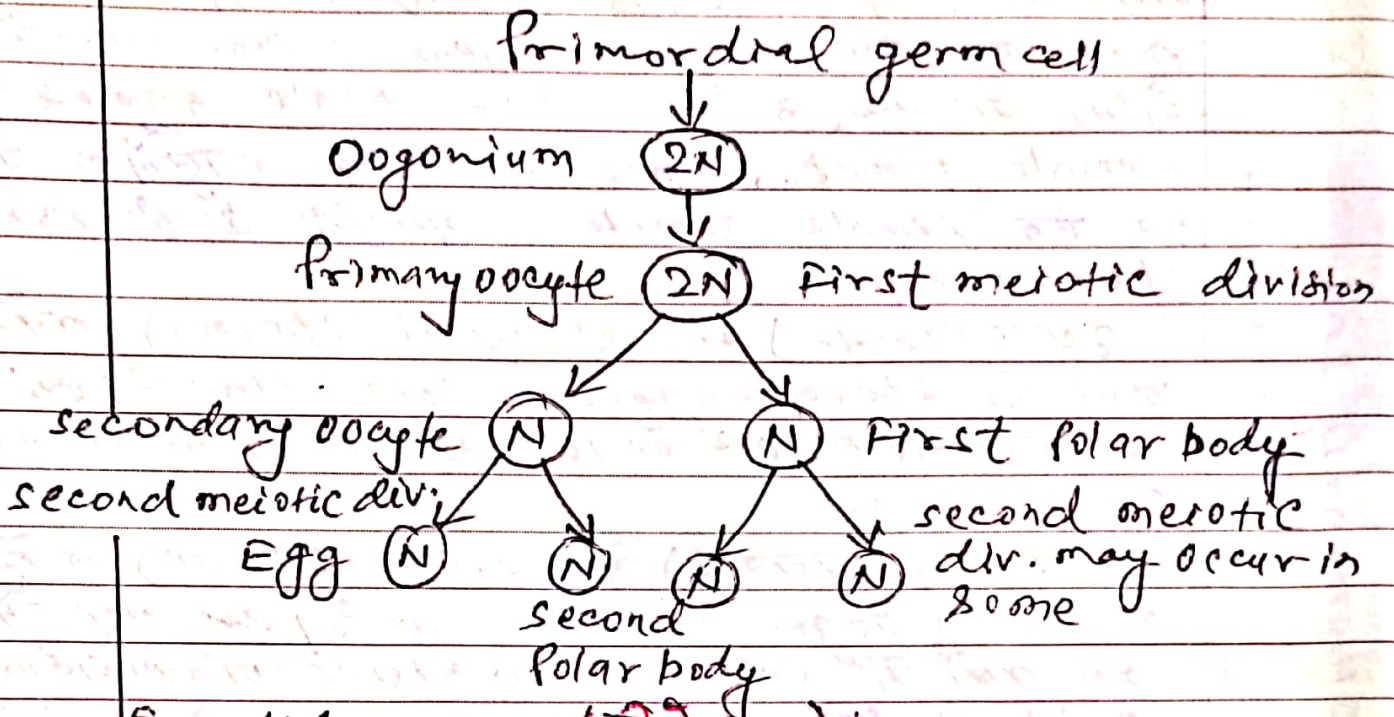 Primordial germ cell
Oogonium 2N
Primary oocyte 2N First meiotic division
secondary oocyte N N First Polar body
second meiotic div.
Egg N N N N second meiotic
div. may occur in
some
second
Polar body